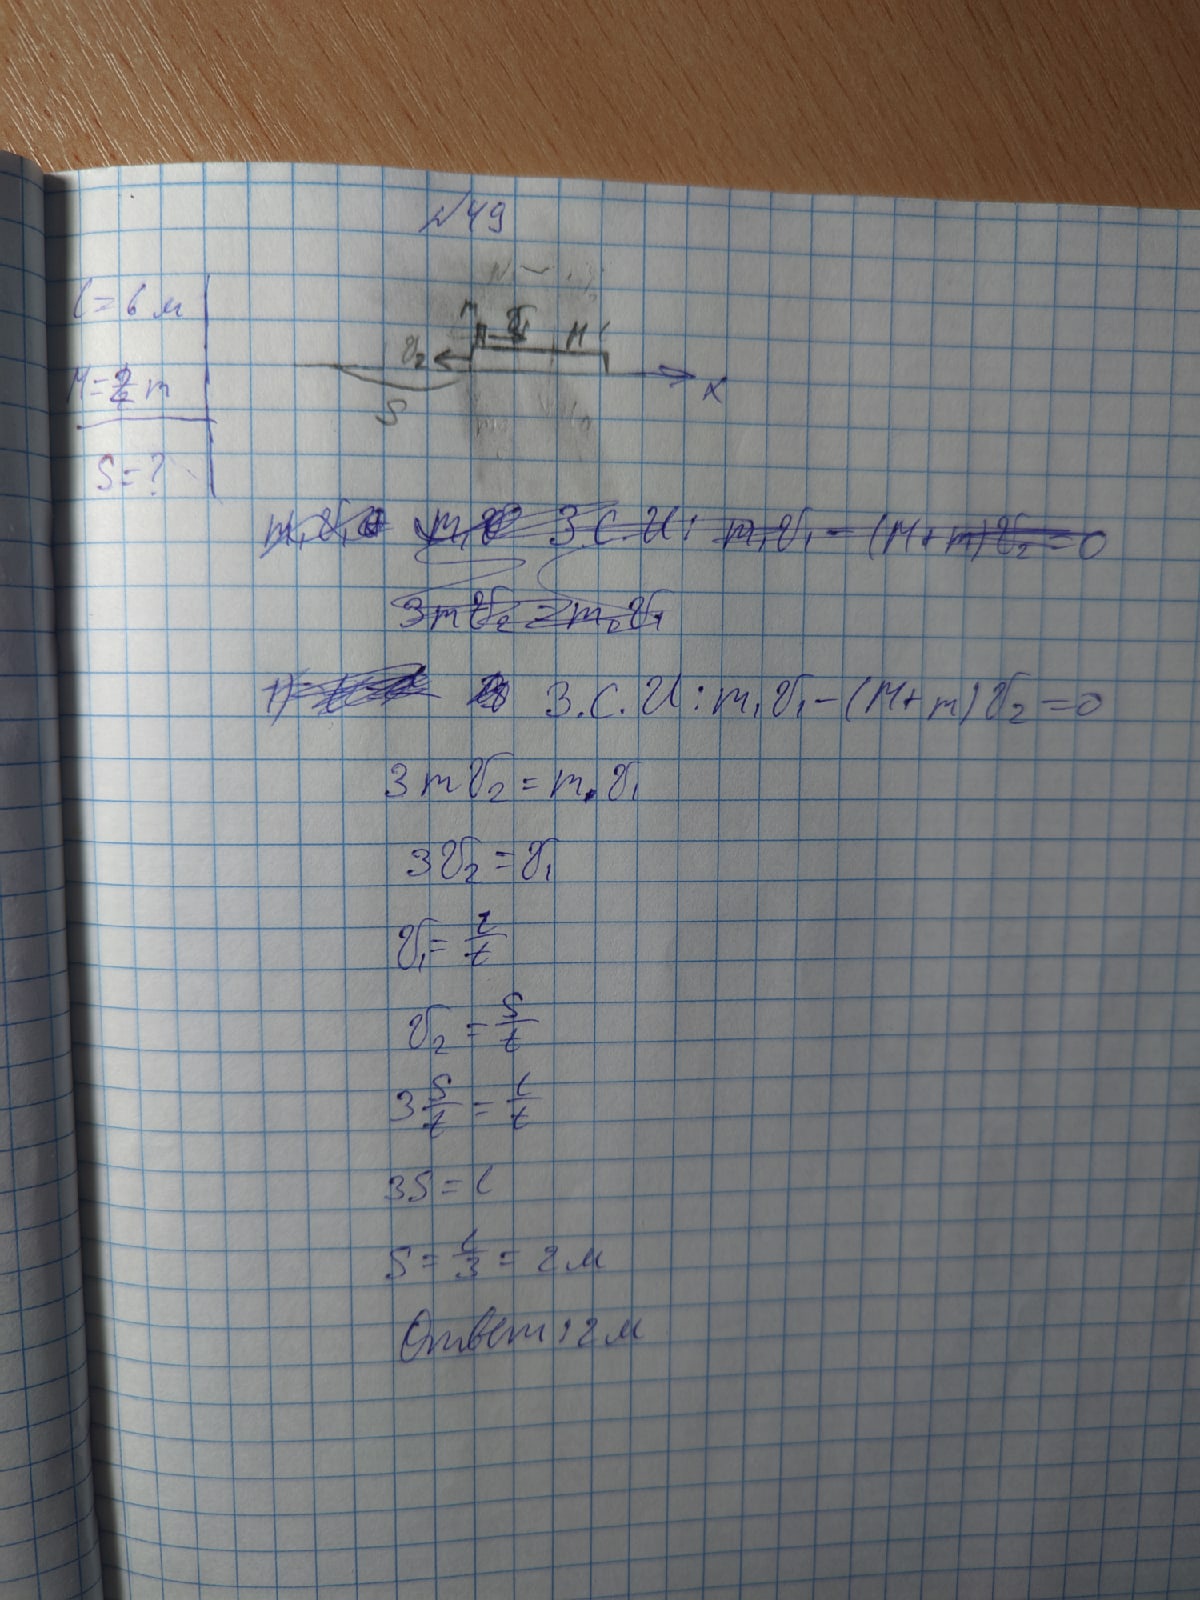 №49
l=6 м
M=2m
S=?
m
v₁
M
l
v₂
S
x
З.С.И: m₁v₁-(M+m)v₂=0
3mv₂=m₂v₁
З.С.И: m₁v₁-(M+m)v₂=0
3mv₂=m.v₁
3v₂=v₁
v₁=l/t
v₂=S/t
3S/t=l/t
3S=l
S=l/3=2м
Ответ: 2м